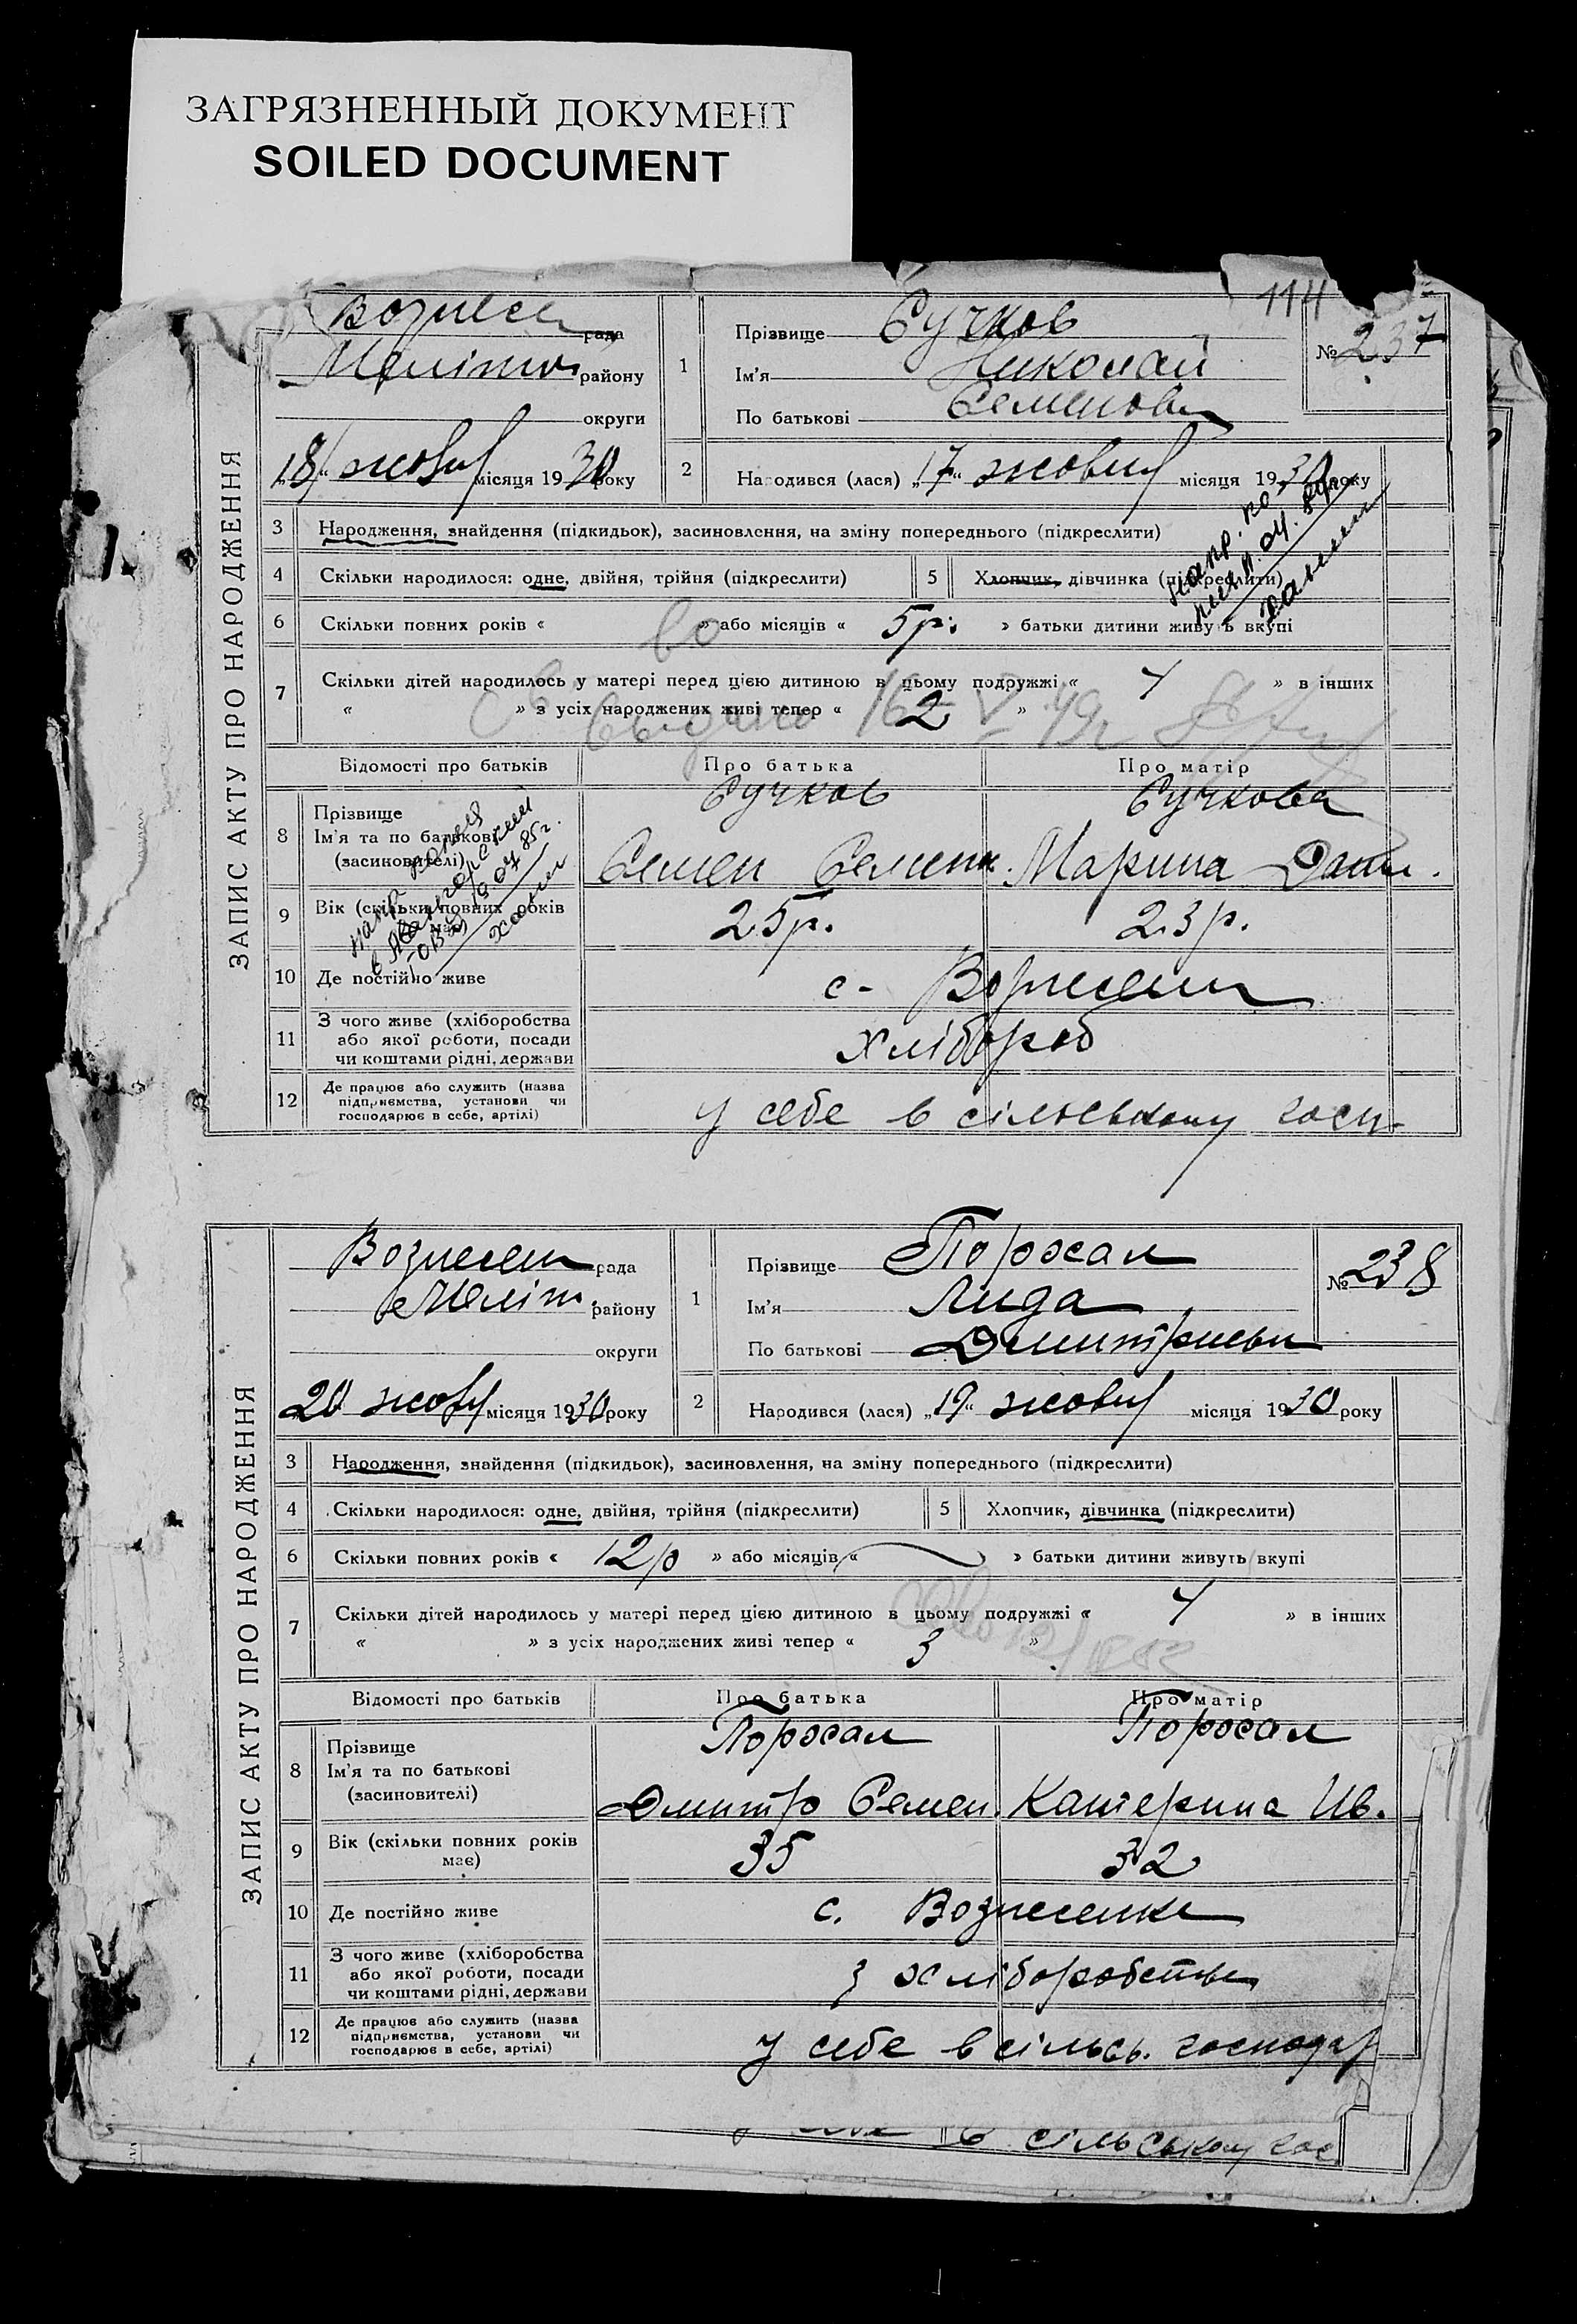 ЗАГРЯЗНЕННЫЙ ДОКУМЕНТ
SOILED DOCUMENT
114
ЗАПИС АКТУ ПРО НАРОДЖЕННЯ
Вознесен рада
Меліт району
округи
18 жовт місяця 1930 року
1 Прізвище Сучков
Ім'я Николай
По батькові Семенов
№ 237
2 Народився (лася) „17“ жовт місяця 1930 року
3 Народження, знайдення (підкидьок), засиновлення, на зміну попереднього (підкреслити)
4 Скільки народилося: одне, двійня, трійня (підкреслити) 5 Хлопчик, дівчинка (підкреслити)
6 Скільки повних років « » або місяців « 5 р. » батьки дитини живуть вкупі
7 Скільки дітей народилось у матері перед цією дитиною в цьому подружжі « 1 » в інших
« » з усіх народжених живі тепер « 2 »
Відомості про батьків Про батька Про матір
8 Прізвище Сучков Сучкова
Ім'я та по батькові
(засиновителі) Семен Семен. Марина
9 Вік (скільки повних років має) 25 р. 23 р.
10 Де постійно живе с. Вознесен
11 З чого живе (хліборобства
або якої роботи, посади
чи коштами рідні, держави хлібороб
12 Де працює або служить (назва
підприємства, установи чи
господарює в себе, артілі) у себе в сільському госп.
ЗАПИС АКТУ ПРО НАРОДЖЕННЯ
Вознесен рада
Меліт. району
округи
20 жовт місяця 1930 року
1 Прізвище
Ім'я Лида
По батькові Дмитриевн
№ 238
2 Народився (лася) „19“ жовт місяця 1930 року
3 Народження, знайдення (підкидьок), засиновлення, на зміну попереднього (підкреслити)
4 Скільки народилося: одне, двійня, трійня (підкреслити) 5 Хлопчик, дівчинка (підкреслити)
6 Скільки повних років « 12 р » або місяців « » батьки дитини живуть вкупі
7 Скільки дітей народилось у матері перед цією дитиною в цьому подружжі « 4 » в інших
« » з усіх народжених живі тепер « 3 »
Відомості про батьків Про батька Про матір
8 Прізвище
Ім'я та по батькові
(засиновителі) Дмитро Семен. Катерина Ив.
9 Вік (скільки повних років
має) 35 32
10 Де постійно живе с. Вознесенка
11 З чого живе (хліборобства
або якої роботи, посади
чи коштами рідні, держави з хліборобства
12 Де працює або служить (назва
підприємства, установи чи
господарює в себе, артілі) у себе в сільсь. господар
в сільському гос